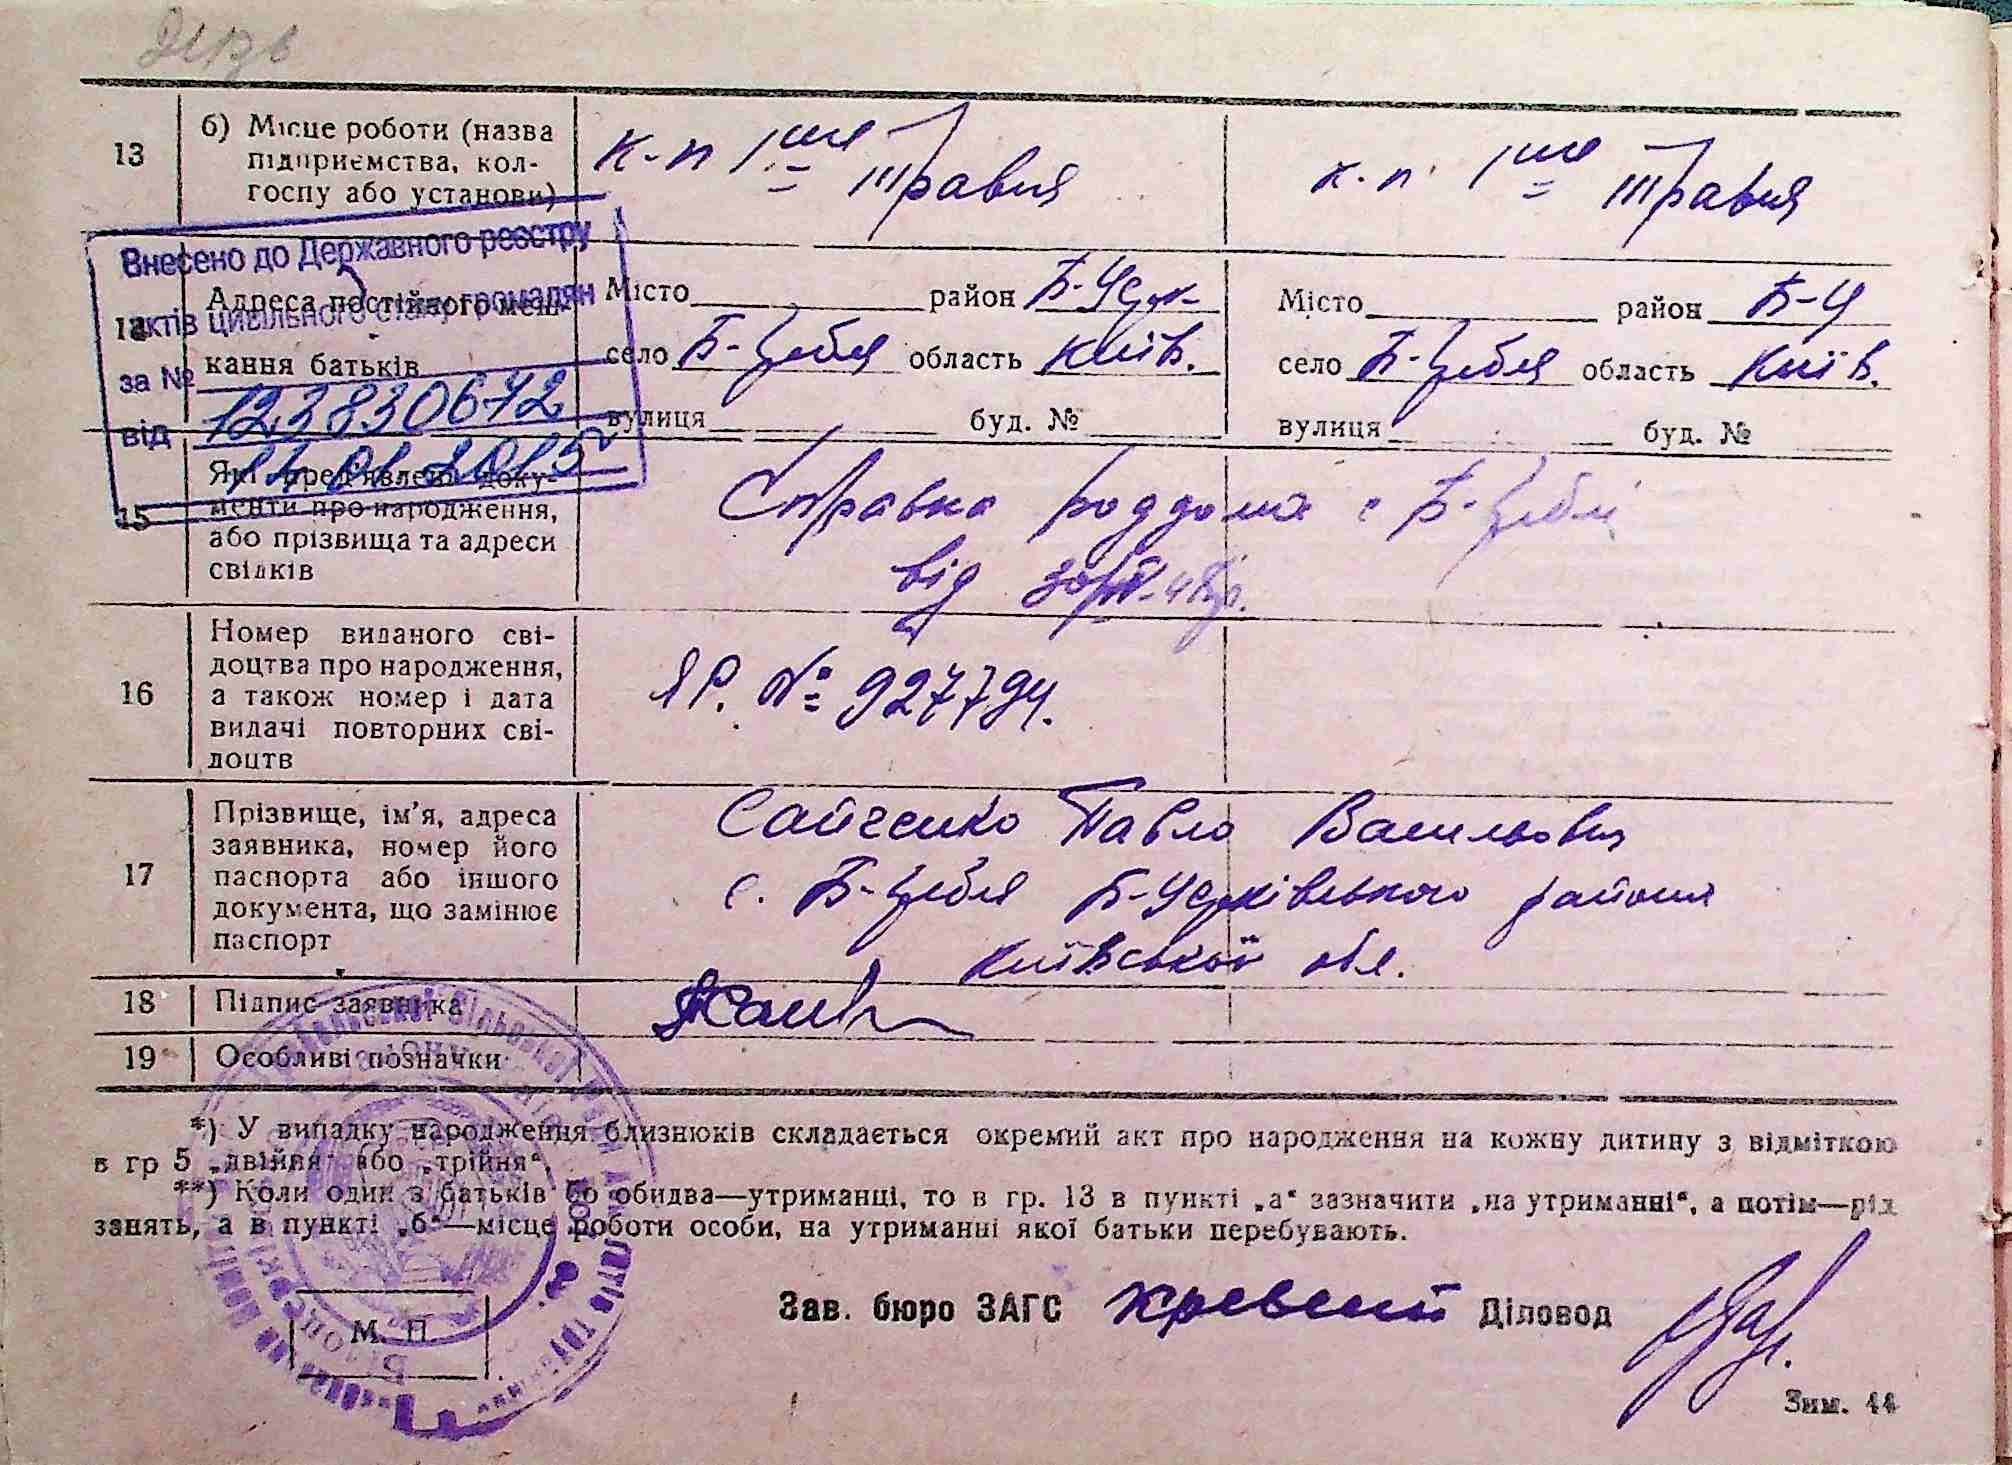 13
б) Місце роботи (назва
підприємства, кол-
госпу або установи)
к-п 1ше Травня
к.п. 1ше Травня
Внесено до Державного реєстру
актів цивільного стану громадян
за № 1238830672
від
14
Адреса постійного меш-
кання батьків
Місто район
село Б-Цебля область Київ.
вулиця буд. №
Місто район Б-Ц
село Б-Цебля область Київ.
вулиця буд. №
15
Які пред'явлені доку-
менти про народження,
або прізвища та адреси
свідків
Справка роддома с Б-Цеблі
від
16
Номер виданого сві-
доцтва про народження,
а також номер і дата
видачі повторних сві-
доцтв
ЯР. № 927794.
17
Прізвище, ім'я, адреса
заявника, номер його
паспорта або іншого
документа, що замінює
паспорт
Сайченко Павло Васильович
с. Б-Цебля района
Київської обл.
18
Підпис заявника
19
Особливі позначки
*) У випадку народження близнюків складається окремий акт про народження на кожну дитину з відміткою
в гр 5 „двійня“ або „трійня“.
**) Коли один з батьків бо обидва—утриманці, то в гр. 13 в пункті „а“ зазначити „на утриманні“, а потім—рід
занять, а в пункті „б“—місце роботи особи, на утриманні якої батьки перебувають.
Зав. бюро ЗАГС Діловод
М. П.
Зим. 44